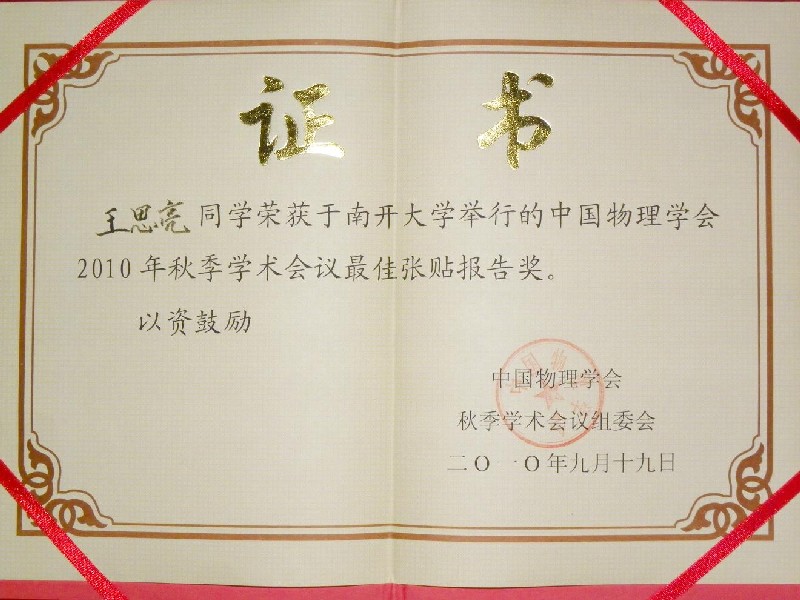 证 书
王思亮同学荣获于南开大学举行的中国物理学会
2010年秋季学术会议最佳张贴报告奖。
以资鼓励
中国物理学会
秋季学术会议组委会
二〇一〇年九月十九日